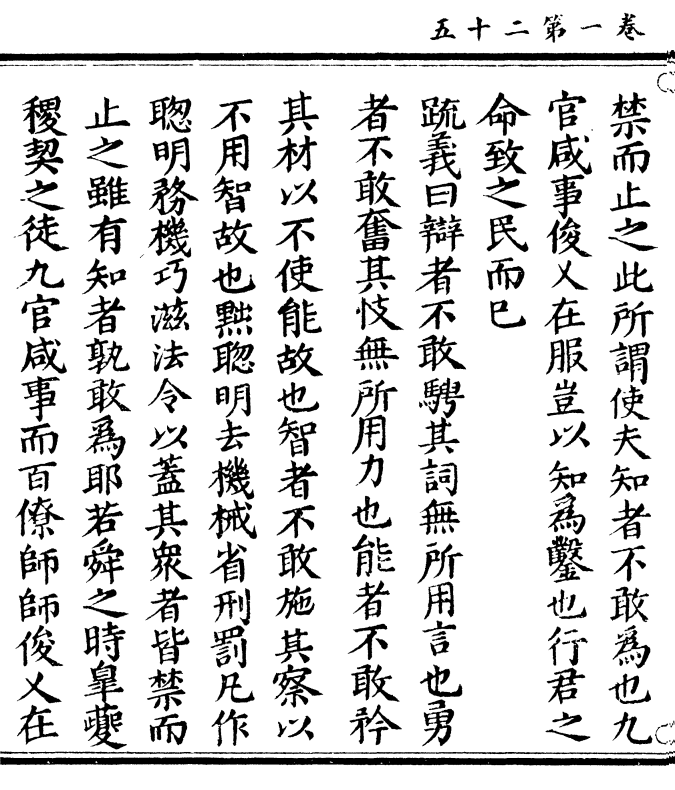 卷一第二十五
禁而止之此所謂使夫知者不敢爲也九
官咸事俊乂在服豈以知爲鑿也行君之
命致之民而已
疏義曰辯者不敢騁其詞無所用言也勇
者不敢奮其忮無所用力也能者不敢矜
其材以不使能故也智者不敢施其察以
不用智故也黜聦明去機械省刑罰凡作
聦明務機巧滋法令以蓋其衆者皆禁而
止之雖有知者孰敢爲耶若舜之時臯夔
稷契之徒九官咸事而百僚師師俊乂在